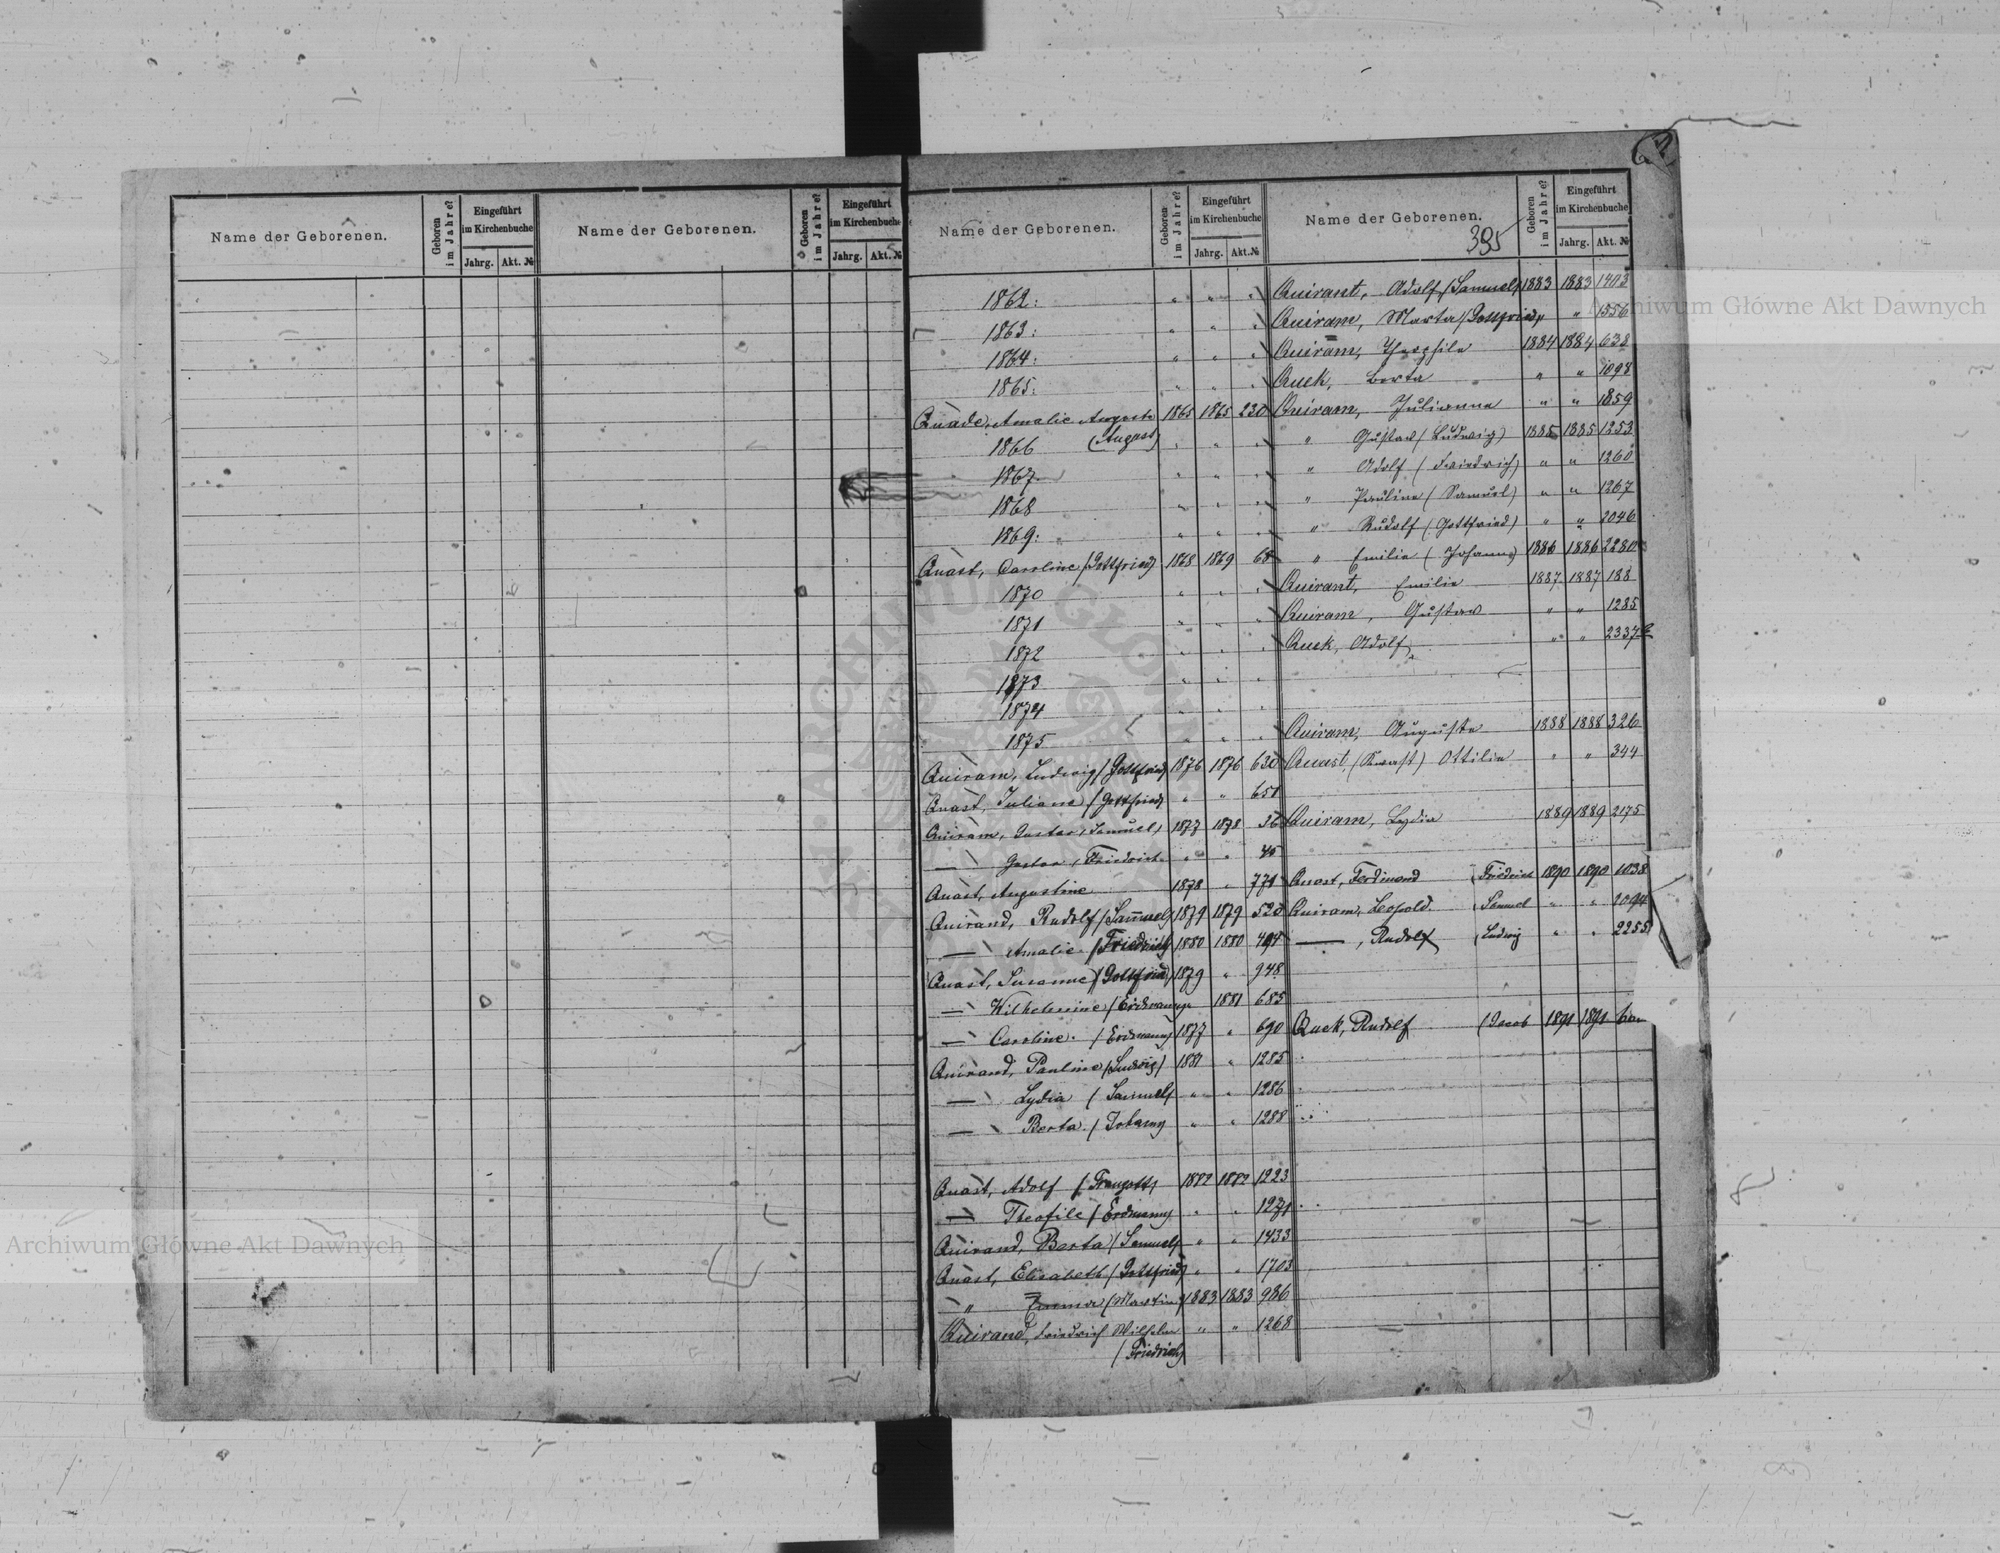 Name der Geborenen.
Geboren im Jahre?
Eingeführt im Kirchenbuche
Jahrg.
Akt. №
Name der Geborenen.
Geboren im Jahre?
Eingeführt im Kirchenbuche
Jahrg.
Akt. №
Name der Geborenen.
Geboren im Jahre?
Eingeführt im Kirchenbuche
Jahrg.
Akt. №
1862: " " "
1863: " " "
1864: " " "
1865: " " "
Quade, Amalie Auguste 1865 1865 230
(August)
1866 " " "
1867 " " "
1868 " " "
1869: " " "
Quast, Caroline (Gottfried) 1868 1869 68
1870 " " "
1871 " " "
1872 " " "
1873 " " "
1874 " " "
1875 " " "
Quiram, Ludwig (Gottfried) 1876 1876 630
Quast, Juliane (Gottfried) " " 651
Quiram, Gustav (Samuel) 1877 1878 36
— Gustav (Friedrich " "
Quast, Augustine 1878 " 771
Quirand, Rudolf (Samuel) 1879 1879 520
— Amalie (Friedrich) 1880 1880 494
Quast, Susanne (Gottfried) 1879 " 948
— Wilhelmine (Erdmann) 1881 685
— Caroline (Erdmann) 1877 " 690
Quirand, Pauline (Ludwig) 1881 " 1285
— Lydia (Samuel) " " 1286
— Berta (Johann) " " 1288
Quast, Adolf (Traugott) 1882 1882 1223
— Theofile (Erdmann) " " 1271
Quirand, Berta (Samuel) " " 1433
Quast, Elisabeth (Gottfried) " " 1703
" Emma (Martin) 1883 1883 986
Quirand, Friedrich Wilhelm " " 1268
(Friedrich)
Name der Geborenen.
395
Geboren im Jahre?
Eingeführt im Kirchenbuche
Jahrg.
Akt. №
Quirant, Adolf (Samuel) 1883 1883 1403
Quiram, Marta (Gottfried) " 1556
Quiram, Theophile 1884 1884 638
Quek, Berta " " 1098
Quiram, Julianna " " 1859
" Gustav (Ludwig) 1885 1885 1253
" Adolf (Friedrich) " " 1260
" Pauline (Samuel) " " 1267
" Rudolf (Gottfried) " " 2046
" Emilie (Johann) 1886 1886 2280
Quirant, Emilie 1887 1887 188
Quiram, Gustav " " 1285
Quek, Adolf " " 2337
Quiram, Auguste 1888 1888 326
Quast, (Kwast) Ottilie " " 344
Quiram, Lydia 1889 1889 2175
Quast, Ferdinand (Friedrich 1890 1890 1038
Quiram, Leopold. (Samuel " " 2094
—, Rudolf (Ludwig " " 2255
Quek, Rudolf (Jacob 1891 1891
Archiwum Główne Akt Dawnych
Archiwum Główne Akt Dawnych